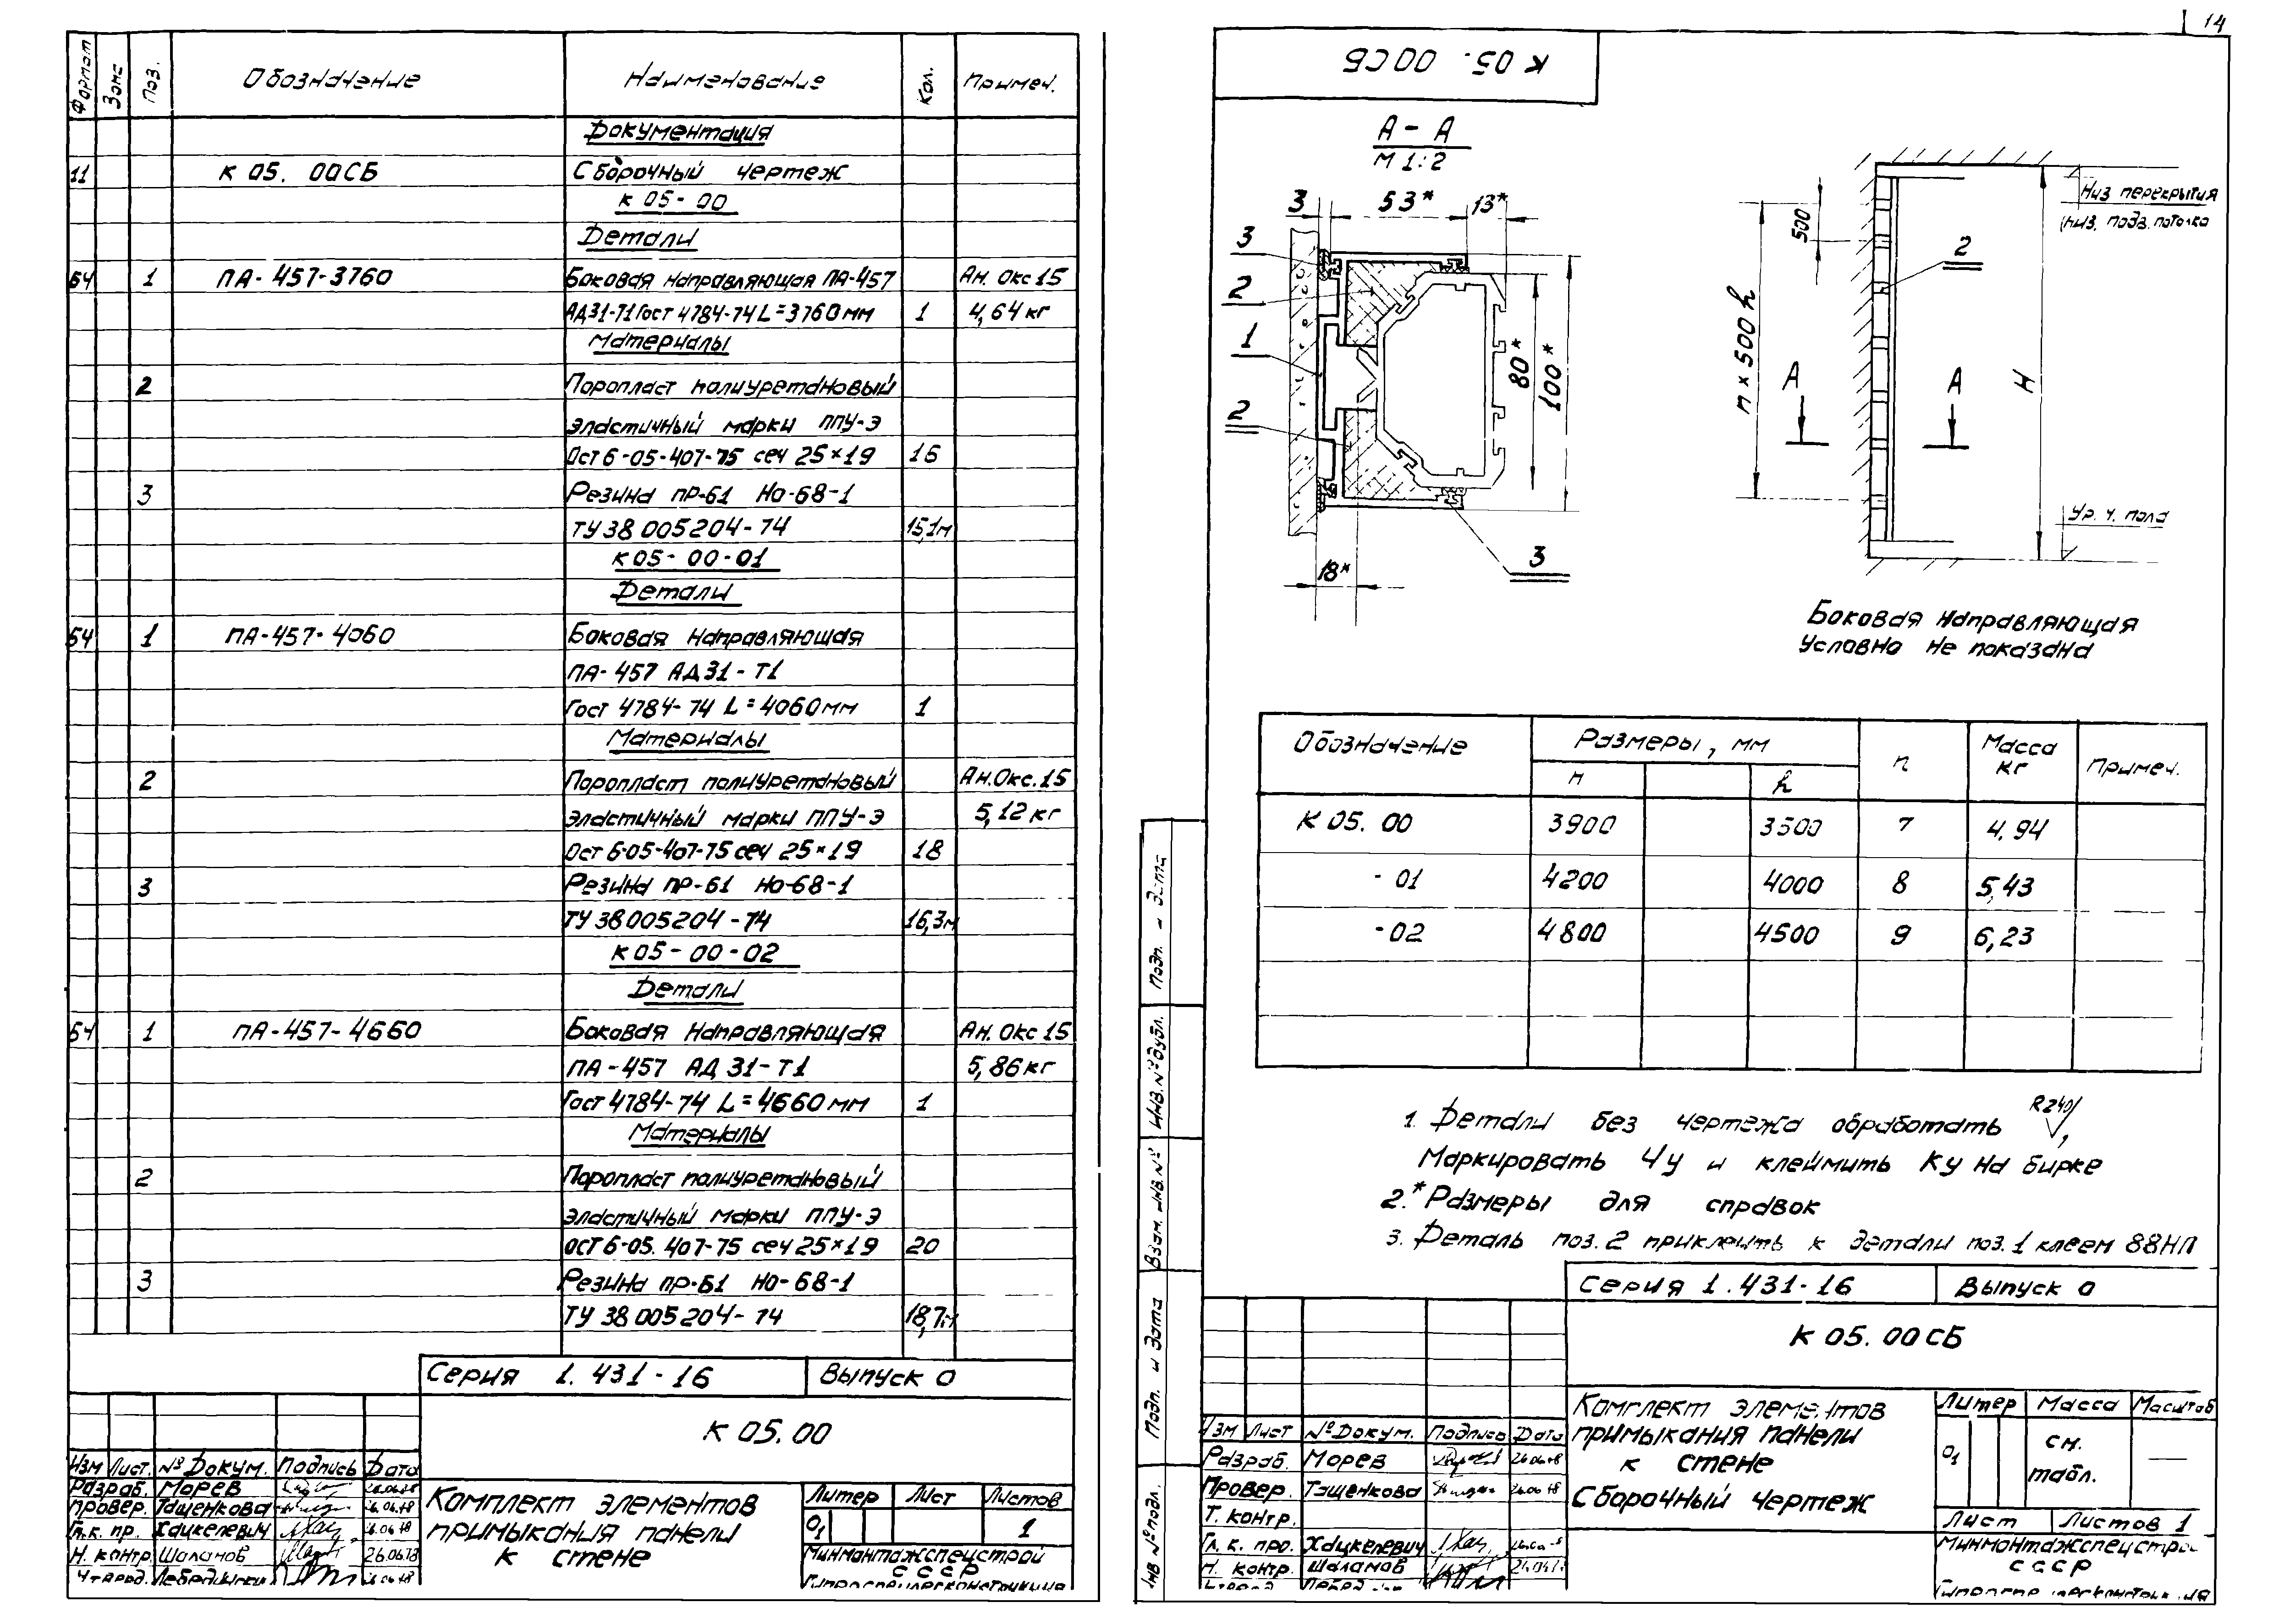 Формат Зона Поз. Обозначение Наименование Кол. Примеч.
Документация
11 К 05. 00СБ Сборочный чертеж
К 05-00
Детали
БЧ 1 ПА-457-3760 Боковая направляющая ПА-457 Ан. Окс 15
АД31-Т1 Гост 4784-74 L=3760мм 1 4,64 кг
Материалы
2 Поропласт полиуретановый
эластичный марки ППУ-Э
Ост 6-05-407-75 сеч 25×19 16
3 Резина пр-61 НО-68-1
ТУ 38 005204-74 15,1м
К 05-00-01
Детали
БЧ 1 ПА-457-4060 Боковая направляющая
ПА-457 АД31-Т1
Гост 4784-74 L=4060мм 1
Материалы
2 Поропласт полиуретановый Ан.Окс.15
эластичный марки ППУ-Э 5,12 кг
Ост 6-05-407-75 сеч 25×19 18
3 Резина пр-61 НО-68-1
ТУ 38 005204-74 16,3м
К 05-00-02
Детали
БЧ 1 ПА-457-4660 Боковая направляющая Ан. Окс 15
ПА-457 АД 31-Т1 5,86 кг
Гост 4784-74 L=4660мм 1
Материалы
2 Поропласт полиуретановый
эластичный марки ППУ-Э
ОСТ 6-05. 407-75 сеч 25×19 20
3 Резина пр-61 НО-68-1
ТУ 38 005204-74 18,7м
Серия 1. 431-16 Выпуск 0
К 05.00
Изм Лист. № Докум. Подпись Дата
Разраб. Морев
Провер. Тащенкова 26.06.78
Гл. к. пр. Хацкелевич 26.06.78
Н. контр. Шаламов 26.06.78
Комплект элементов
примыкания панели
к стене
Литер Лист Листов
О1 1
Минмонтажспецстрой
СССР
14
К 05. 00СБ
А-А
М 1:2
3 53* 13*
3
2
1
2
3
80*
100*
18*
500
п×500 h
2
А А
Н
Низ перекрытия
(низ. подв. потолка
Ур. ч. пола
Боковая направляющая
условно не показана
Обозначение Размеры, мм п Масса кг Примеч.
Н h
К 05. 00 3900 3500 7 4,94
-01 4200 4000 8 5,43
-02 4800 4500 9 6,23
1. Детали без чертежа обработать R240,
Маркировать Чу и клеймить Ку на бирке
2.* Размеры для справок
3. Деталь поз. 2 приклеить к детали поз. 1 клеем 88НП
Подп. и дата
Инв. № дубл.
Взам. инв. №
Подп. и дата
Инв № подл.
Серия 1.431-16 Выпуск 0
К 05. 00СБ
Изм Лист № Докум. Подпись Дата
Разраб. Морев 26.06.78
Провер. Тащенкова 26.06.78
Т. контр.
Гл. к. про. Хацкелевич
Н. контр. Шаламов
Комплект элементов
примыкания панели
к стене
Сборочный чертеж
Литер Масса Масштаб
О1 см. табл. —
Лист Листов 1
Минмонтажспецстрой
СССР